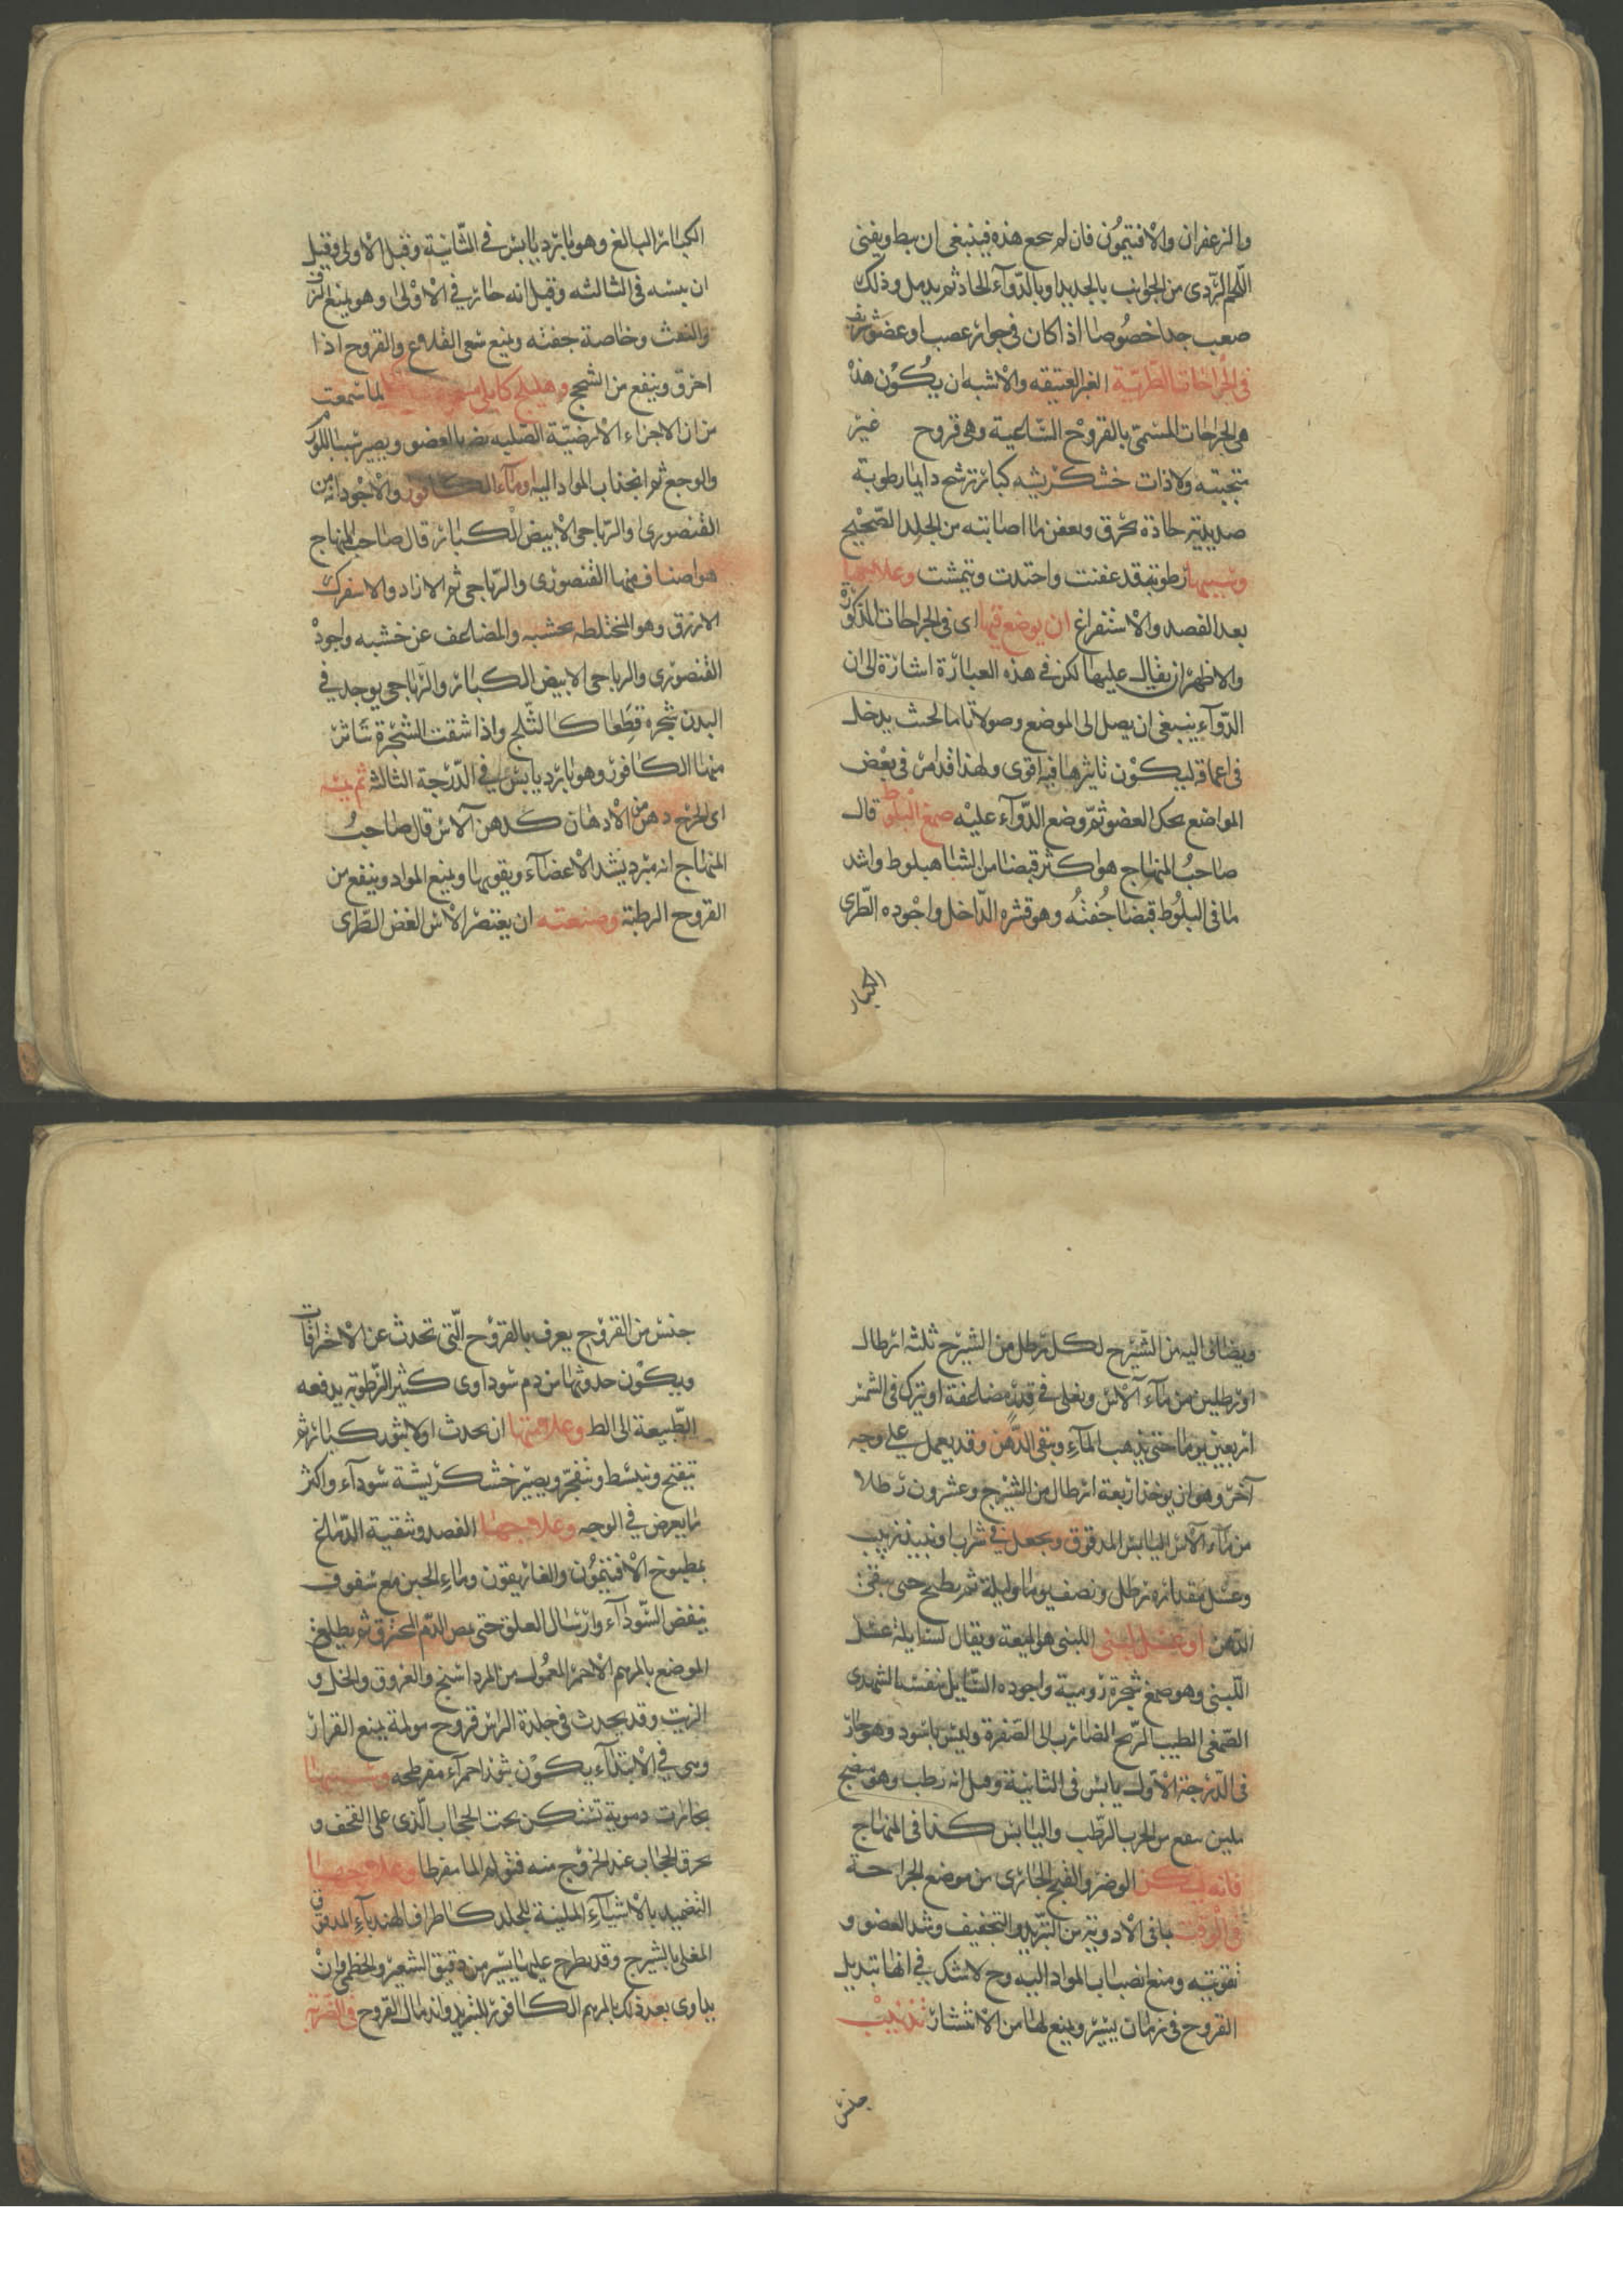 والزعفران والافتيمون فان لم ينجع هذه فينبغى ان يبط ويفنى
اللحم الردى من الجوانب بالحديد او بالدوآء الحاد ثم يدمل وذلك
صعب جدا خصوصا اذا كان فى جوار عصب او عضو شريف
فى الجراحات الطرية الغير العتيقه والاشبه ان يكون هذه
هى الجراحات المسمى بالقروح الساعية وهى قروح غير
متجبنه ولا ذات خشكريشه كبائر ترشح دايما رطوبة
صديدية حادة تحرق وتعفن ما اصابته من الجلد الصحيح
وسببها رطوبة قد عفنت واحتدت وتمشت وعلاجها
بعد الفصد والاستفراغ ان يوضع فيها اى فى الجراحات المذكورة
والاظهر ان يقال عليها لكن فى هذه العبارة اشارة الى ان
الدوآء ينبغى ان يصل الى الموضع وصولا تاما بحيث يدخل
فى اعماقه ليكون تاثيرها فيه اقوى ولهذا قد امر فى بعض
المواضع بحك العضو ثم وضع الدوآء عليه صمغ البلوط قال
صاحب المنهاج هو اكثر قبضا من الشاهبلوط واشد
ما فى البلوط قبضا جفته وهو قشره الداخل واجوده الطرى
الكبار
الكبائر البالغ وهو بارد يابس فى الثانية وقيل الاولى وقيل
ان يبسه فى الثالثه وقيل انه حار فى الاولى وهو يمنع النزف
والنفث وخاصة جفته ويمنع سعى القلاع والقروح اذا
احرق وينفع من السحج وهليلج كابلى لما سمعت
من ان الاجزاء الارضية الصلبه يضر بالعضو ويصير سببا للورم
والوجع ثم انجذاب المواد اليه او مآء الكافور والاجود انه من
القنصورى والرباحى الابيض الكبائر قال صاحب المنهاج
هو اصناف منها القنصورى والرباحى ثم الازاد والاسفرك
الازرق وهو المختلطه بخشبه والمضاعف عن خشبه واجوده
القنصورى والرباحى الابيض الكبائر والرباحى يوجد فى
البدن شجره قطعا كالثلج واذا شقت الشجرة تناثر
منها الكافور وهو بارد يابس فى الدرجة الثالثة ثم
اى الجرح دهن من الادهان كدهن آلاس قال صاحب
المنهاج انه مبرد يشد الاعضآء ويقويها ويمنع المواد وينفع من
القروح الرطبة وصنعته ان يعتصر الاس الغض الطرى
ويضاف اليه من الشيرج لكل رطل من الشيرج ثلثه ارطال
او رطلين من مآء آلاس ويغلى فى قدر مضاعفة او يترك فى الشمس
اربعين يوما حتى يذهب المآء ويبقى الدهن وقد يعمل على وجه
آخر وهو ان يوخذ اربعة ارطال من الشيرج وعشرون رطلا
من مآء الآس اليابس المدقوق ويجعل فى شراب او نبيذ زبيب
وعسل مقداره رطل ونصف يوما وليلة ثم يطبح حتى يبقى
الدهن او عسل لبنى اللبنى هو الميعة ويقال لسايله عسل
اللبنى وهو صمغ شجرة رومية واجوده السايل بنفسه الشهدى
الصمغى الطيب الريح الضارب الى الصفرة وليس باسود وهو حار
فى الدرجة الاولى يابس فى الثانية وقيل انه رطب وهو منضج
ملين ينفع من الجرب الرطب واليابس كذا فى المنهاج
فانه الوضر والقيح الجارى من موضع الجراحة
فى الوقت باقى الادوية من التبريد والتجفيف وشد العضو و
تقويته ومنع انصباب المواد اليه وح لا شك فى انها تبديل
القروح فى زمان يسير ويمنع لها من الانتشار تذنيب
جنس
جنس من القروح يعرف بالقروح التى تحدث عن الاحراقات
ويكون حدوثها من دم سوداوى كثير الرطوبة يدفعه
الطبيعة الى الط وعلامتها ان يحدث اولا بثور كبائر ثم
تتفتح وتنبسط وتنفجر ويصير خشكريشة سودآء واكثر
ما يعرض فى الوجه وعلاجها الفصد وتنقية الدماغ
بمطبوخ الافتيمون والغاريقون ومآء الجبن مع سفوف
ينفض السودآء وارسال العلق حتى يمص الدم المحترق ثم يطلى
الموضع بالمرهم الاحمر المعمول من المرداسنج والعروق والخل و
الزيت وقد يحدث فى جلدة الراس قروح مولمة يمنع القرار
وهى فى الابتدآء يكون بثورا حمرآء مفرطحه وسببها
بخارات دموية تتسكن تحت الحجاب الذى على القحف و
تحرق الحجاب عند الخروج منه فتولم الما مفرطا وعلاجها
التضميد بالاشيآء الملينة للجلد كاطراف الهندبآء المدقوق
المغلى بالشيرج وقد يطرح عليها يسير من دقيق الشعير والخطمى وان
يداوى بعد ذلك بالمرهم الكافور للتبريد واندمال القروح فى الضربة